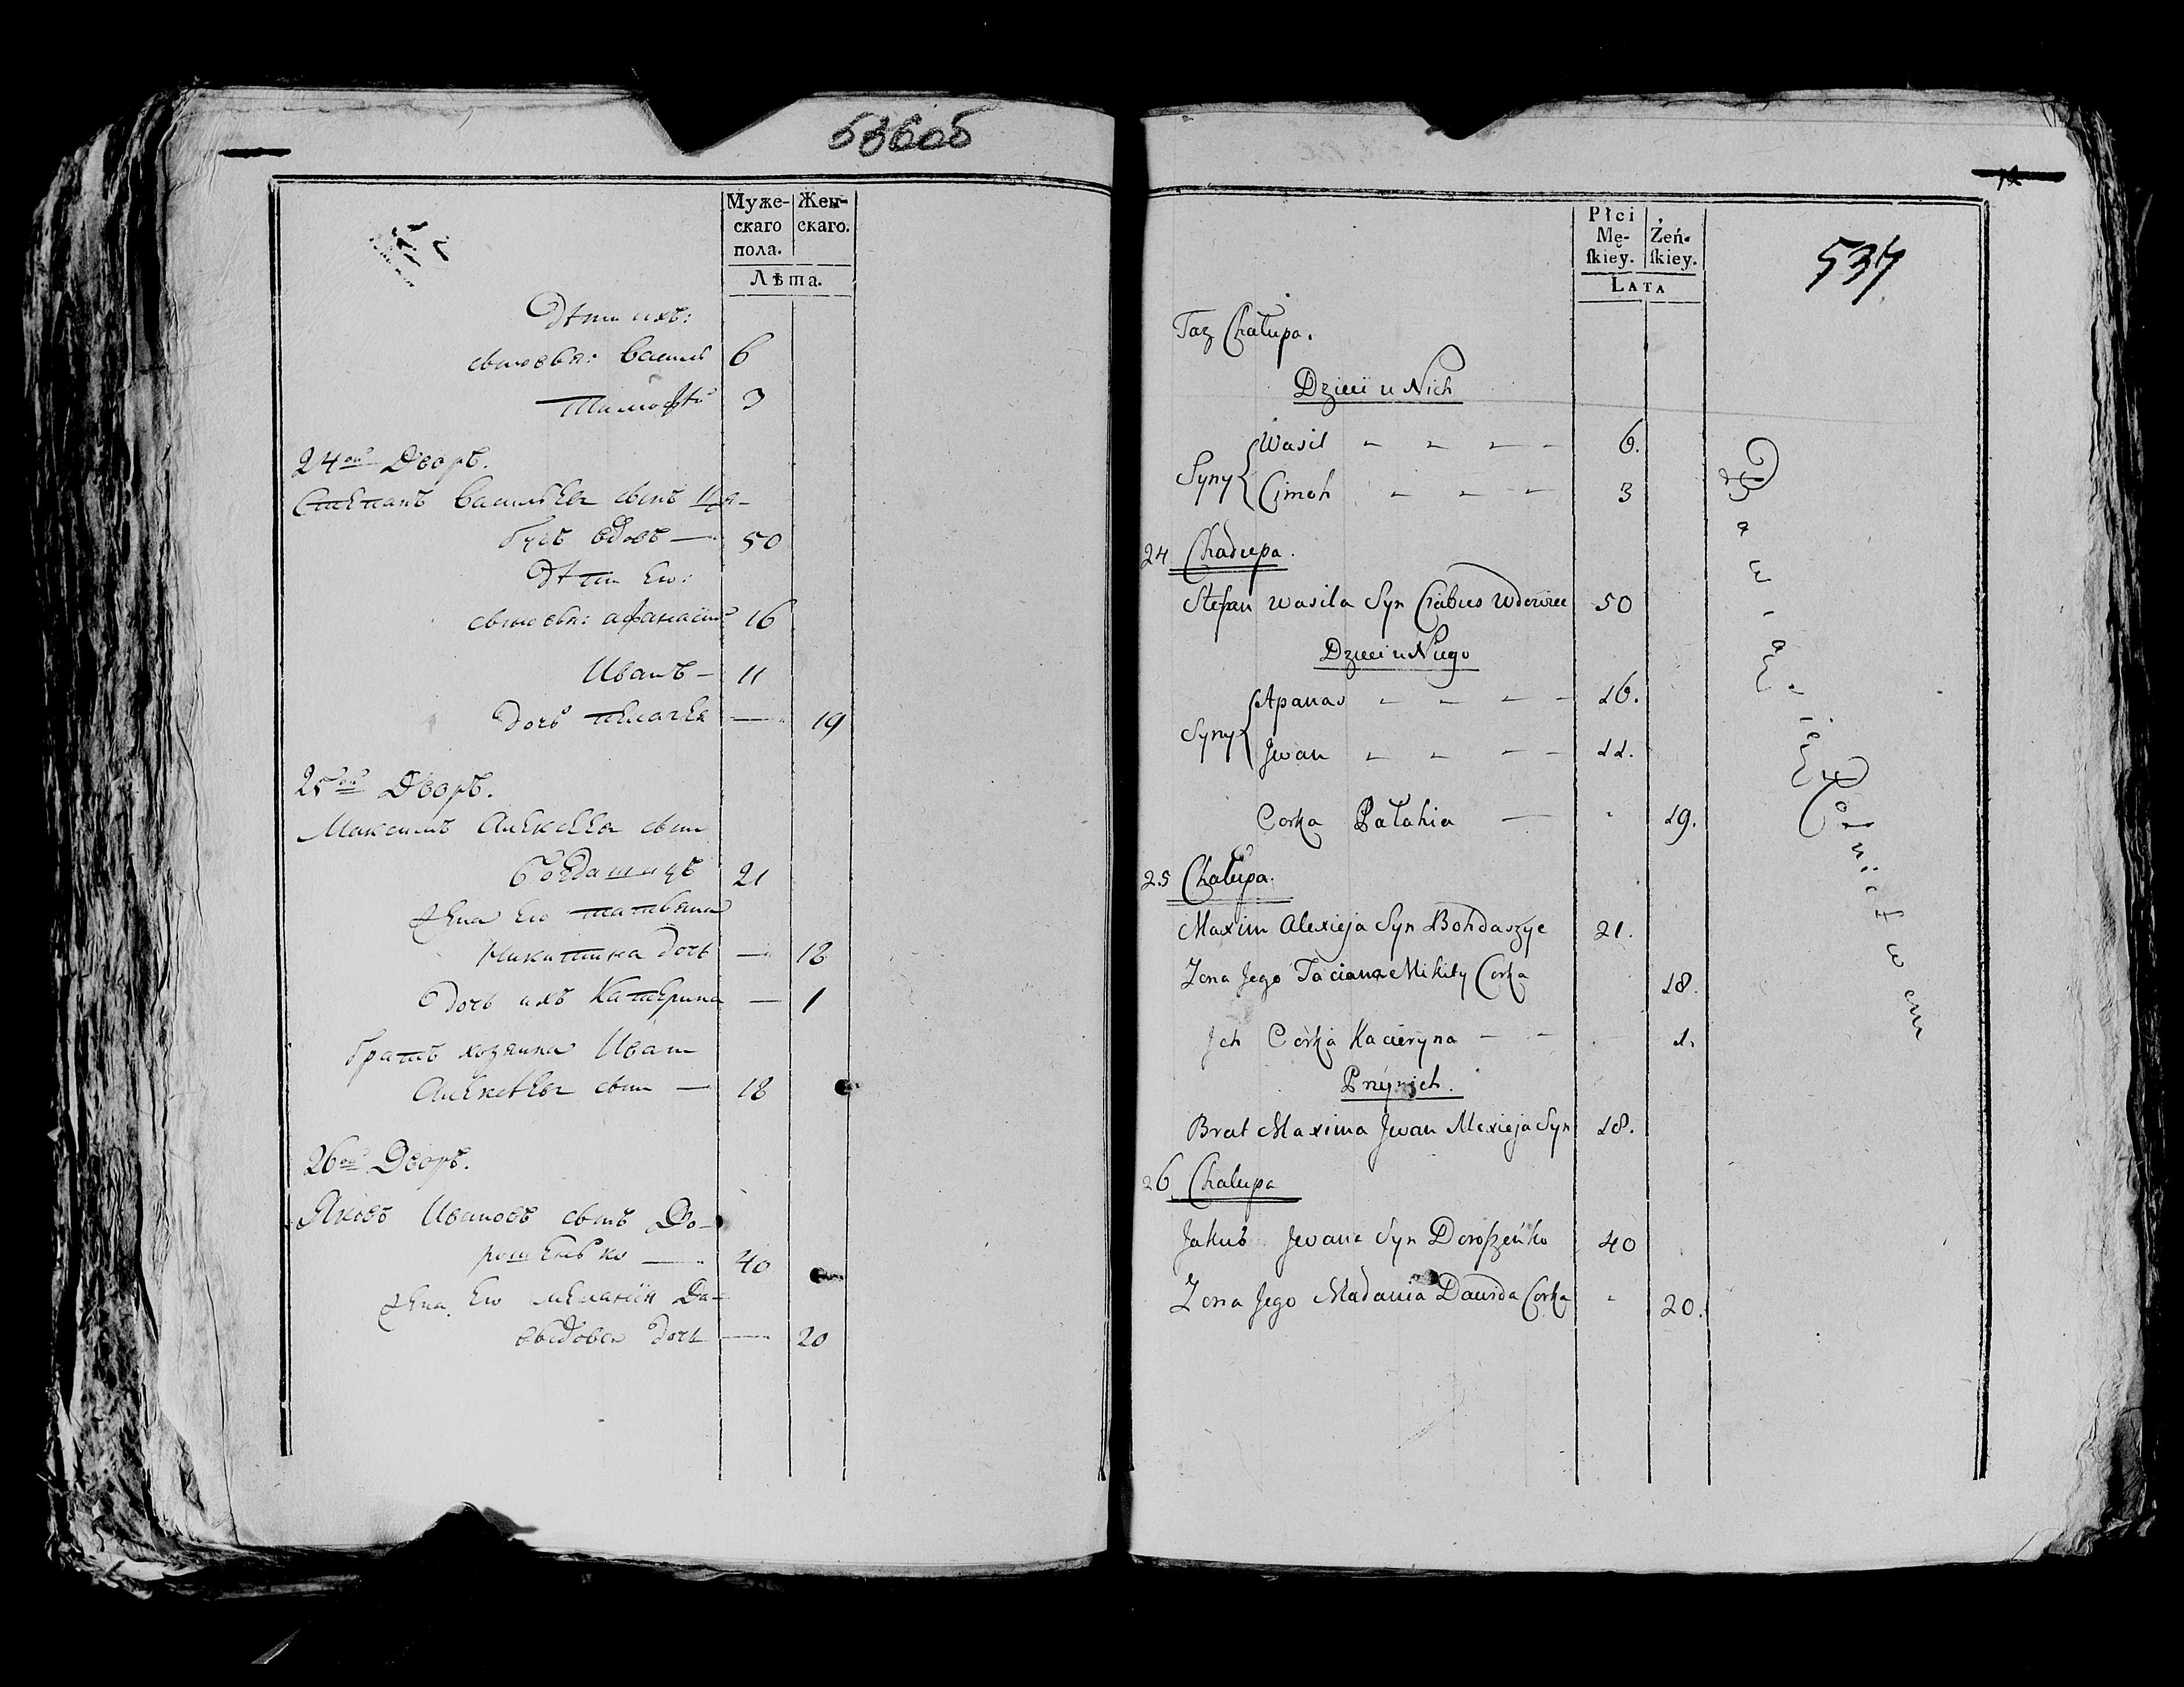 536об
Муже-
скаго
пола.
Жен-
скаго.
Лѣта.
Дѣти ихъ:
сыновья: василь 6
Тимофѣй 3
24ой Дворъ.
Степанъ васильевъ сынъ Ця-
бусъ вдовъ — 50
Дѣти Его:
сыновья: афанасий 16
Иванъ — 11
дочь пелагея — 19
25ой Дворъ.
Максимъ Алексеевъ сынъ
богдашицъ 21
Жена Его татьяна
Никитина дочь — 18
Дочь ихъ Катерина — 1
братъ хозяина Иванъ
Алексѣевъ сынъ — 18
26ой Дворъ.
Яковъ Ивановъ сынъ До-
рошенько — 40
Жена Его меланія Да-
выдова дочь — 20
Płci
Mę-
skiey.
Żeń-
skiey.
LATA
537
Taz Chałupa.
Dzieci u Nich
Syny
Wasil - - - - 6.
Cimoh - - - 3
24 Chałupa.
Stefan Wasila Syn Ciabus Wdowiec 50
Dzieci u Niego
Syny
Apanas - - - - 16.
Jwan - - - - 11.
Corka Pałahia — - 19.
25 Chałupa.
Maxim Alexieja Syn Bohdaszyc 21.
Zona Jego Taciana Mikity Corka 18.
Jch Corka Kacieryna - - - 1.
Przy nich.
Brat Maxima Jwan Alexieja Syn 18.
26 Chalupa
Jakub Jwana Syn Doroszeńko 40
Zona Jego Madania Dawida Corka - 20.
Rolnictwem